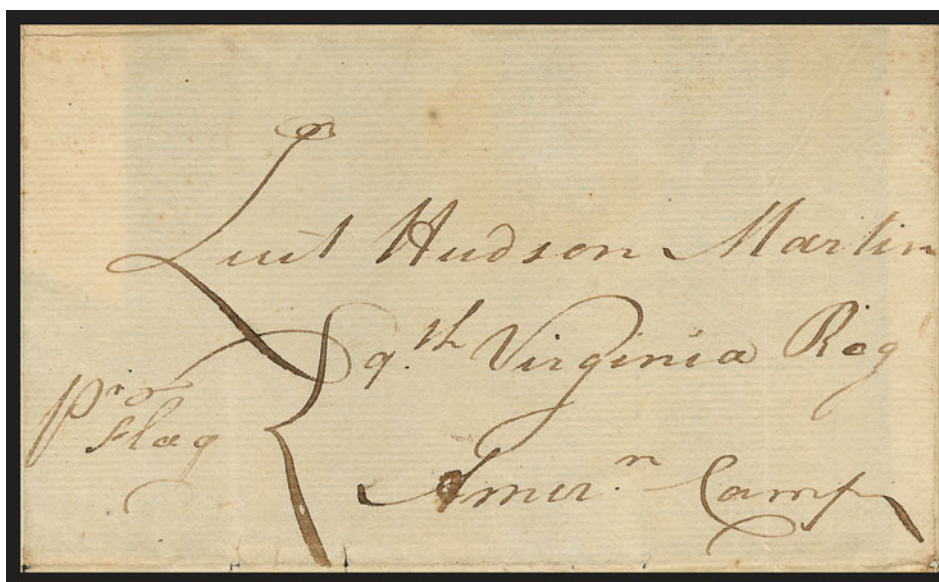 Luit Hudson Martin
9.th Virginia Reg
Pr
Flag
Amer.n Camp